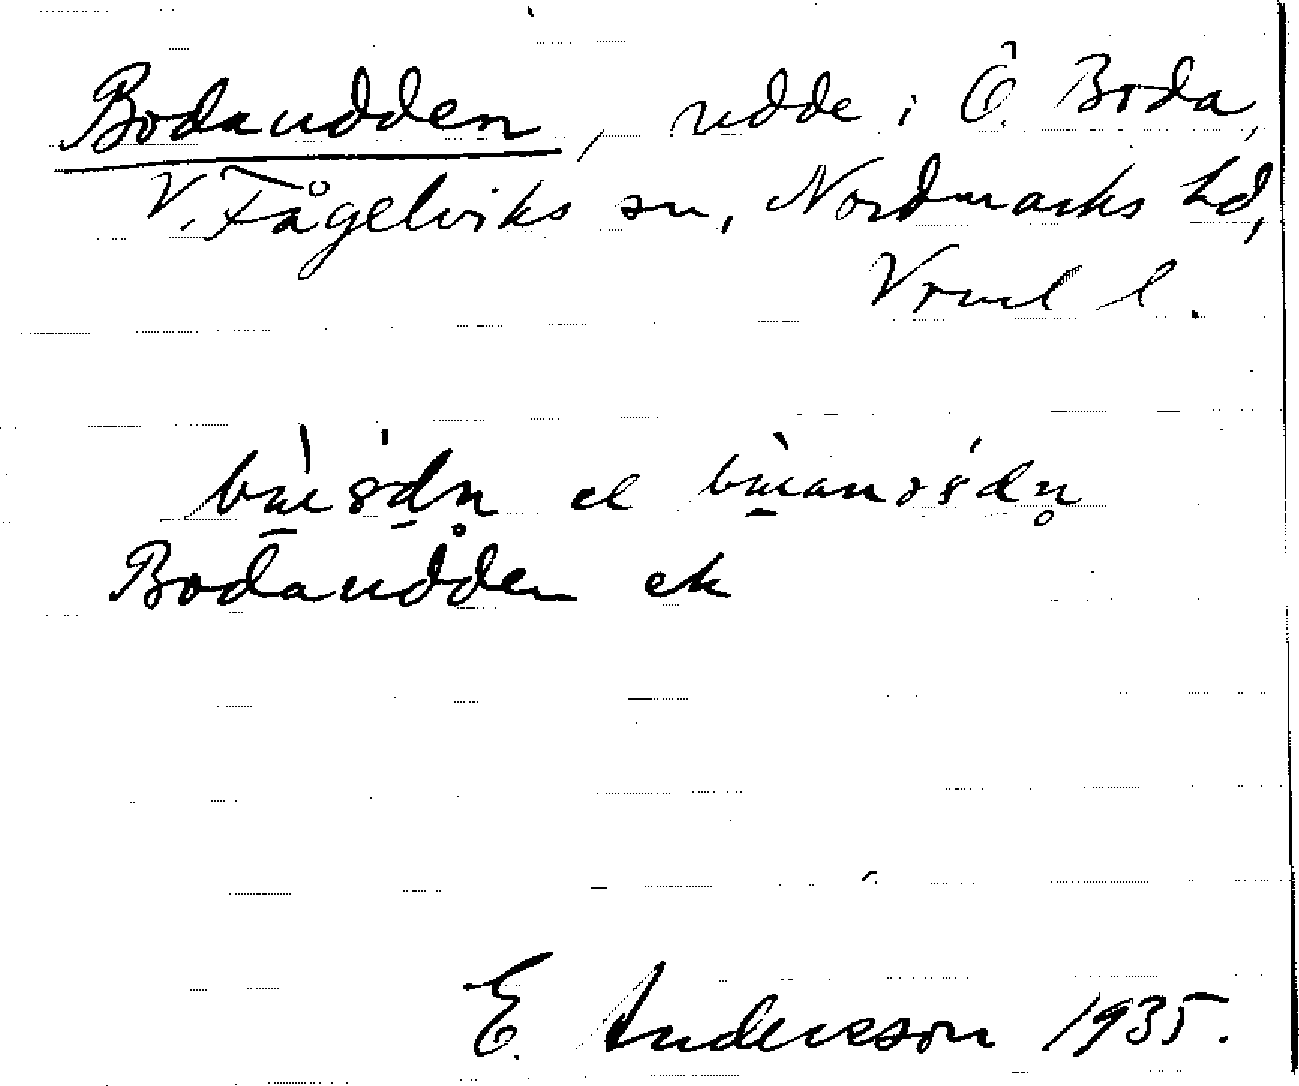 Bodaudden, udde i Ö. Boda,
V. Fågelviks sn, Nordmarks hd,
Vrml l.
el
Bodaudden ek
E. Andersson 1935.